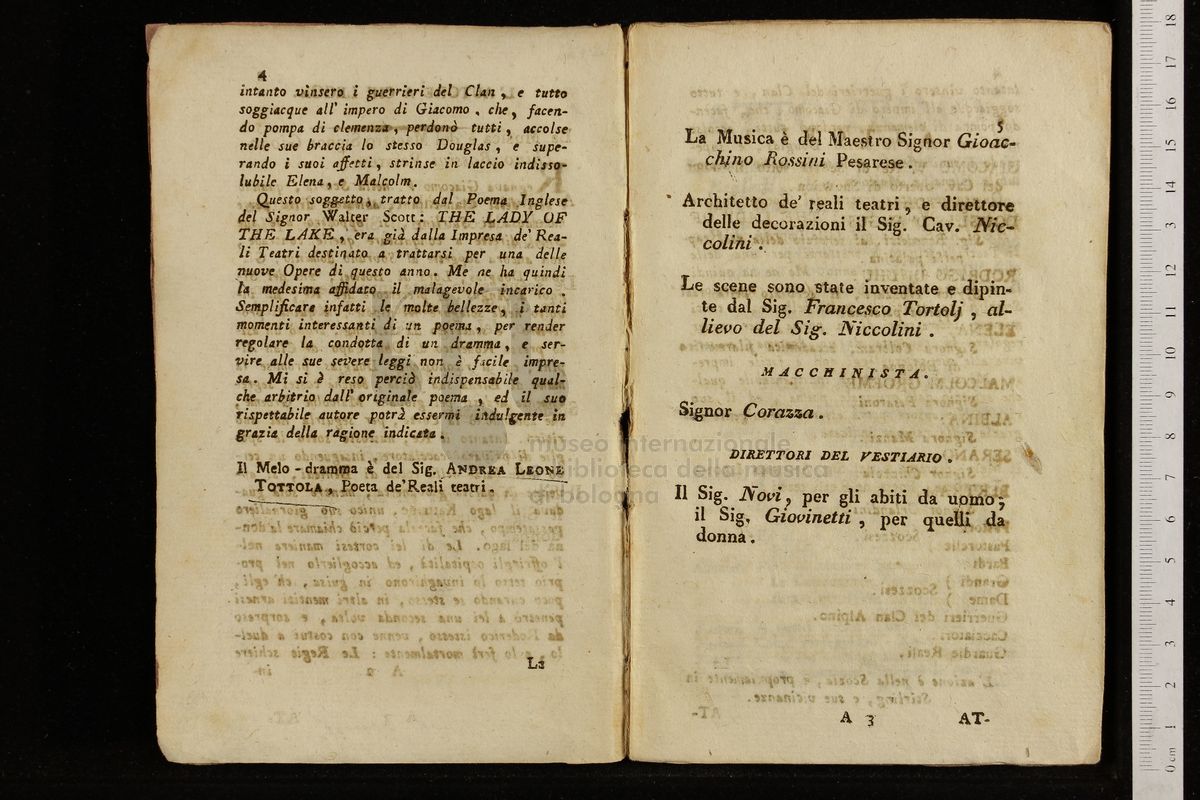 4
intanto vinsero i guerrieri del Clan, e tutto
soggiacque all' impero di Giacomo, che, facen-
do pompa di clemenza, perdonò tutti, accolse
nelle sue braccia lo stesso Douglas, e supe-
rando i suoi affetti, strinse in laccio indisso-
lubile Elena, e Malcolm.
Questo soggetto, tratto dal Poema Inglese
del Signor Walter Scott: THE LADY OF
THE LAKE, era già dalla Impresa de' Rea-
li Teatri destinato a trattarsi per una delle
nuove Opere di questo anno. Me ne ha quindi
la medesima affidato il malagevole incarico.
Semplificare infatti le molte bellezze, i tanti
momenti interessanti di un poema, per render
regolare la condotta di un dramma, e ser-
vire alle sue severe leggi non è facile impre-
sa. Mi si è reso perciò indispensabile qual-
che arbitrio dall' originale poema, ed il suo
rispettabile autore potrà essermi indulgente in
grazia della ragione indicata.
Il Melo-dramma è del Sig. ANDREA LEONE
TOTTOLA, Poeta de' Reali teatri.
La
5
La Musica è del Maestro Signor Gioac-
chino Rossini Pesarese.
Architetto de' reali teatri, e direttore
delle decorazioni il Sig. Cav. Nic-
colini.
Le scene sono state inventate e dipin-
te dal Sig. Francesco Tortolj, al-
lievo del Sig. Niccolini.
MACCHINISTA.
Signor Corazza.
DIRETTORI DEL VESTIARIO.
Il Sig. Novi, per gli abiti da uomo;
il Sig. Giovinetti, per quelli da
donna.
A 3 AT-
museo internazionale
e biblioteca della musica
di bologna
0 cm 1 2 3 4 5 6 7 8 9 10 11 12 13 14 15 16 17 18